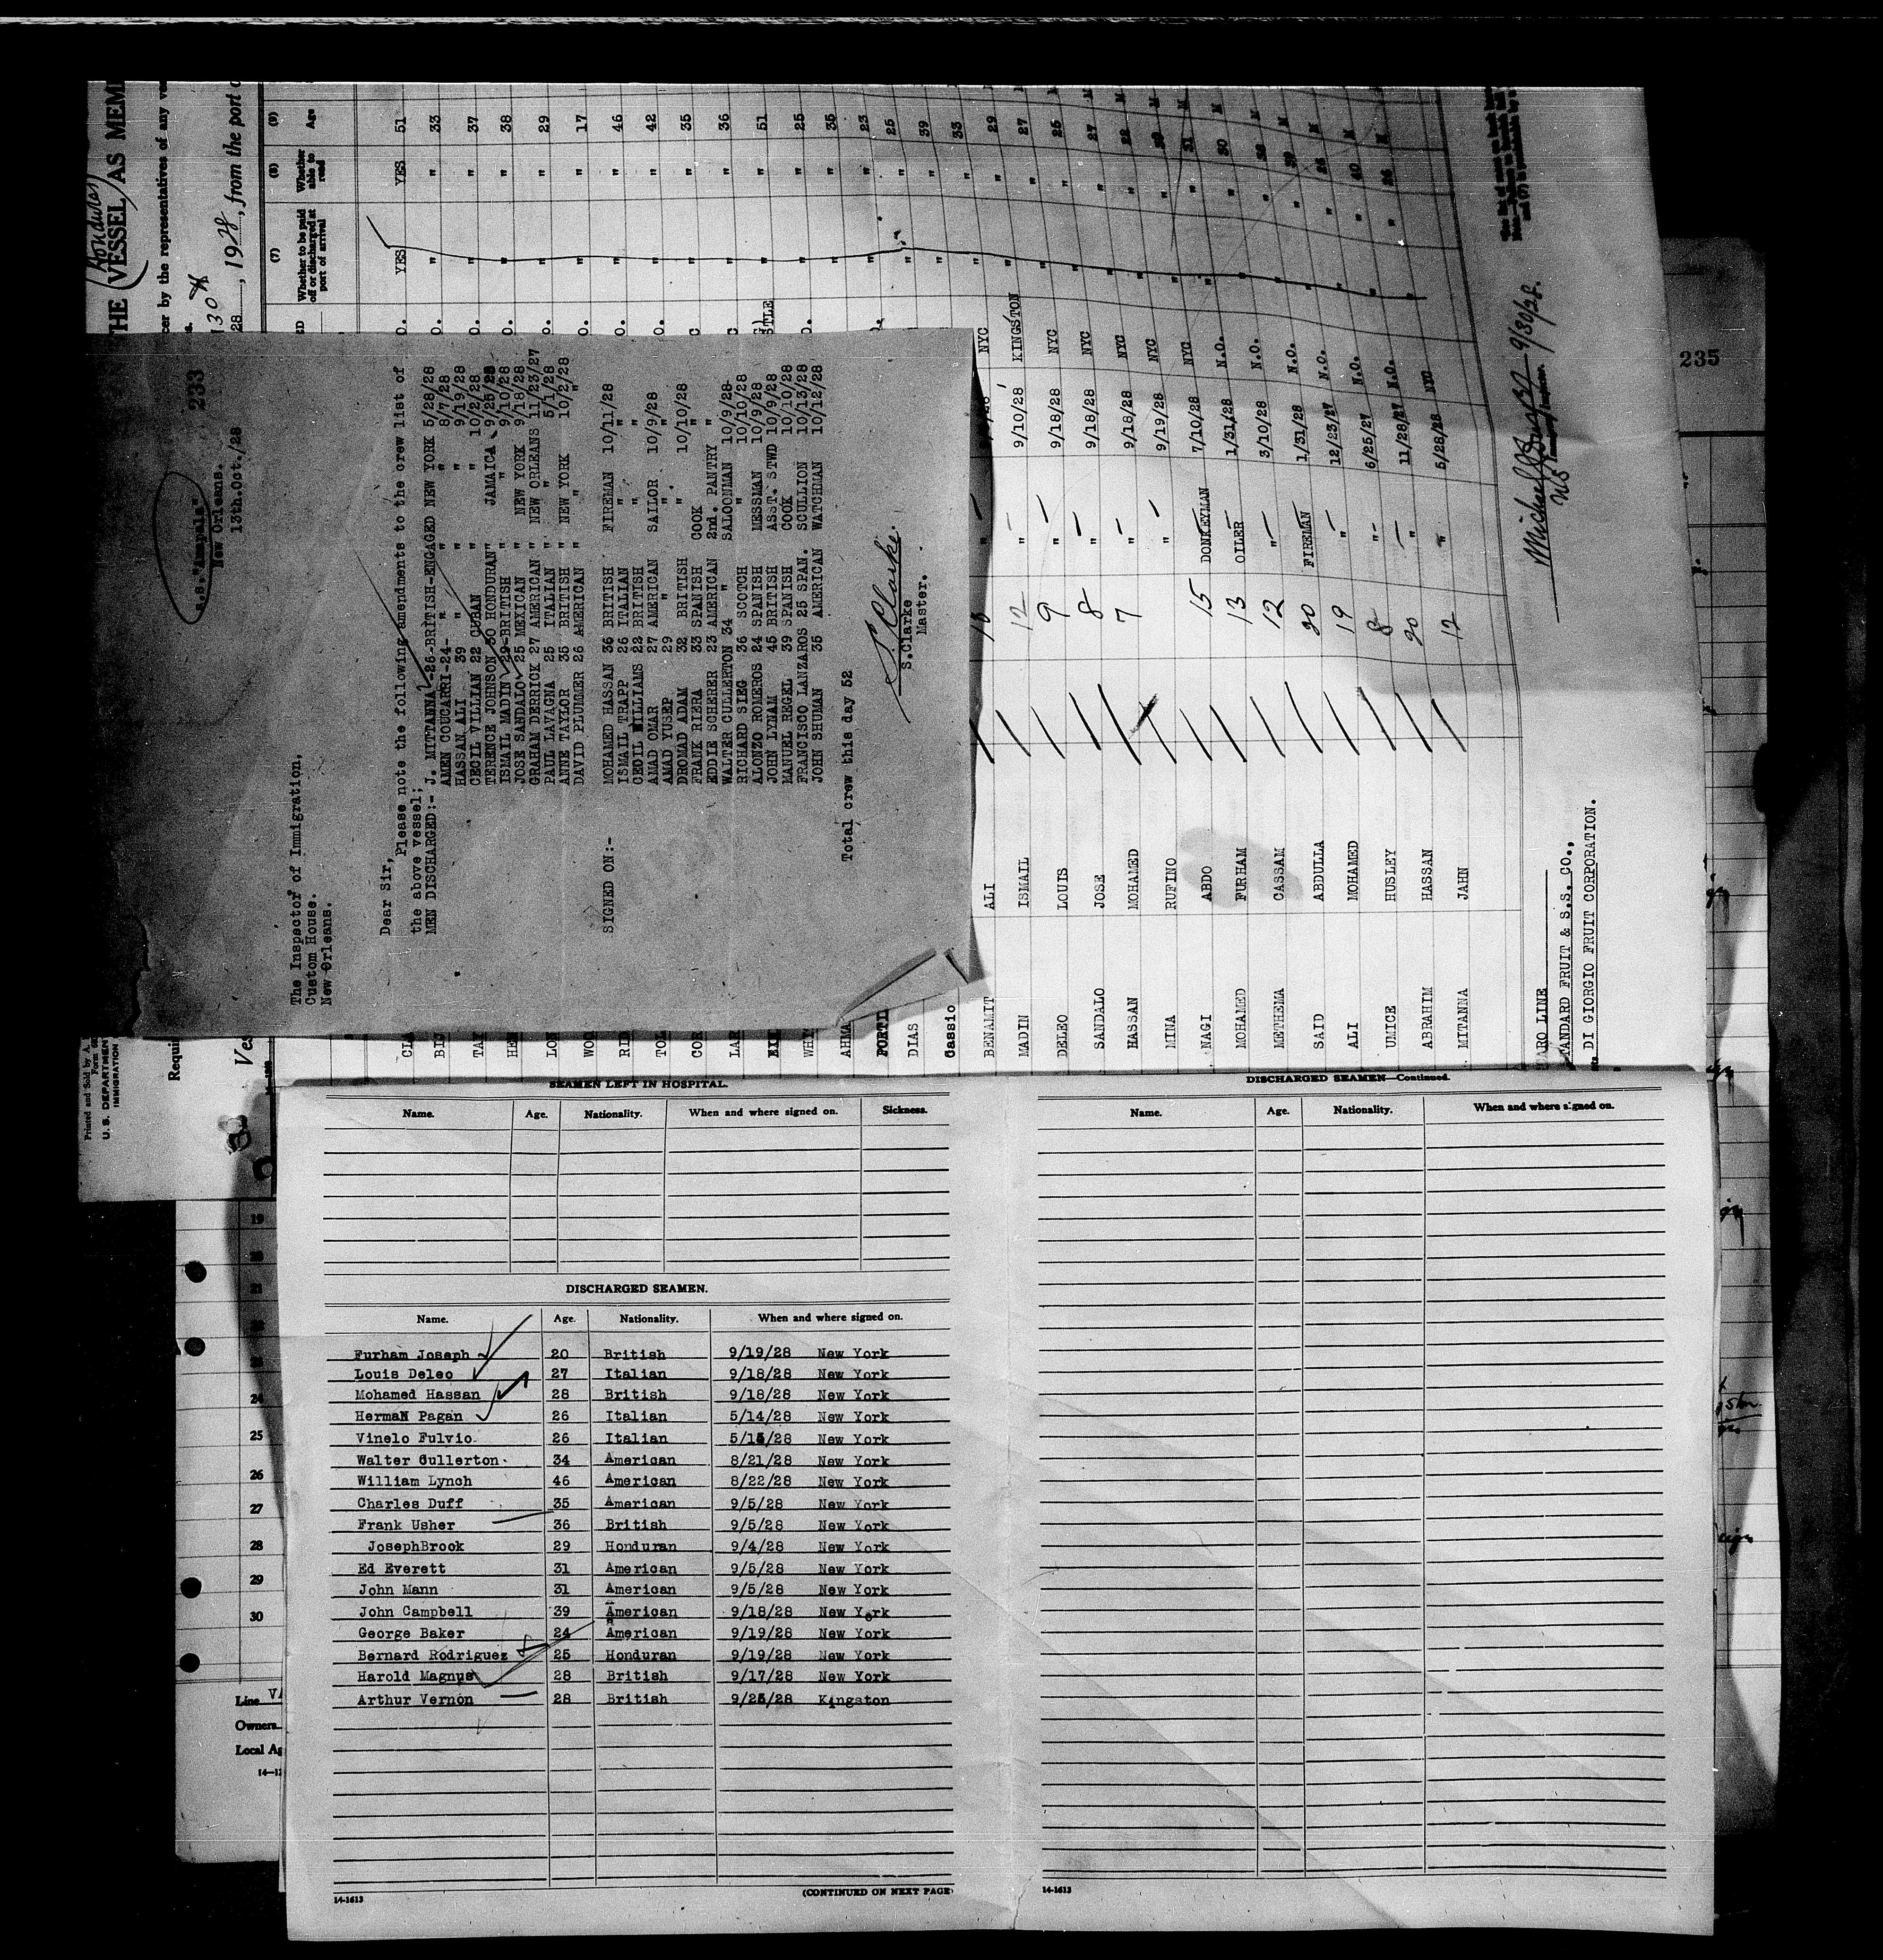 233
s.s."Amapala"
New Orleans.
13th.Oct./28
The Inspector of Immigration,
Custom House.
New Orleans.
Dear Sir,
Please note the following amendments to the crew list of
the above vessel;
MEN DISCHARGED:- J. MITTANNA -26-BRITISH-ENGAGED NEW YORK 5/28/28
AMEN COUCARSI-24- " " " 8/7/28
HASSAN ALI 39 " " " 9/19/28
CECIL VILLIAN 22 CUBAN " " 10/2/28
TERENCE JOHNSON 30 HONDURAN" JAMAICA 9/25/28
ISMAIL MADIN 29-BRITISH " " 9/10/28
JOSE SANDALO 25 MEXICAN " NEW YORK 9/18/28
GRAHAM DERRICK 27 AMERICAN " NEW ORLEANS 11/23/27
PAUL LAVAGNA 25 ITALIAN " " 5/1/28
ANNE TAYLOR 35 BRITISH " NEW YORK 10/2/28
DAVID PLUMMER 26 AMERICAN " " "
SIGNED ON:- MOHAMED HASSAN 36 BRITISH FIREMAN 10/11/28
ISMAIL TRAPP 26 ITALIAN " "
CECIL WILLIAMS 22 BRITISH " "
AMAD OMAR 27 AMERICAN SAILOR 10/9/28
AMAD YUSEP 29 " " "
DROMAD ADAM 32 BRITISH " 10/10/28
FRANK RIERA 33 SPANISH COOK "
EDDIE SCHERER 23 AMERICAN 2nd. PANTRY "
WALTER CULLERTON 34 " SALOONMAN 10/9/28
RICHARD SIEG 36 SCOTCH " 10/10/28
ALONZO ROMEROS 24 SPANISH MESSMAN 10/9/28
JOHN LYNAM 45 BRITISH ASST. STWD 10/9/28
MANUEL REGEL 39 SPANISH COOK 10/10/28
FRANCISCO LANZAROS 25 SPAN. SCULLION 10/13/28
JOHN SHUMAN 35 AMERICAN WATCHMAN 10/12/28
Total crew this day 52
S. Clarke.
S.Clarke
Master.
(Honduras)
THE VESSEL AS MEM
cer by the representatives of any
28, 1928, from the port
(7) (8) (9)
Whether to be paid off or discharged at port of arrival
Whether able to read
Age
YES YES 51
" " 33
" " 37
" " 38
" " 29
" " 17
" " 46
" " 42
" " 35
" " 36
" " 51
" " 25
" " 35
" " 23
" " 25
" " 39
" " 33
BENAMIT ALI " NYC " " 29
MADIN ISMAIL 12 " 9/10/28 KINGSTON " " 27
DELEO LOUIS 9 " 9/18/28 NYC " " 25
SANDALO JOSE 8 " 9/18/28 NYC " " 27
HASSAN MOHAMED 7 " 9/18/28 NYC " " 22
MINA RUFINO " 9/19/28 NYC " "
NAGI ABDO 15 DONKEYMAN 7/10/28 NYC " " 31
MOHAMED FURHAM 13 OILER 1/31/28 N.O. " " 30
METHEMA CASSAM 12 " 3/10/28 N.O. " "
SAID ABDULLA 20 FIREMAN 1/31/28 N.O. " "
ALI MOHAMED 19 " 12/23/27 N.O. " "
UMICE HUSLEY 8 " 6/25/27 N.O. " " 40
ABRAHIM HASSAN 20 " 11/28/27 N.O. " "
MITANNA JAHN 12 " 5/28/28 NYC
9/30/28.
ARO LINE
TANDARD FRUIT & S.S. CO.,
DI GIORGIO FRUIT CORPORATION.
235
Printed and Sold by A.
U. S. DEPARTMENT
IMMIGRATION
Requi
Ves
DIAS
Gassio
SEAMEN LEFT IN HOSPITAL.
Name. Age. Nationality. When and where signed on. Sickness.
DISCHARGED SEAMEN.
Name. Age. Nationality. When and where signed on.
Furham Joseph 20 British 9/19/28 New York
Louis Deleo 27 Italian 9/18/28 New York
Mohamed Hassan 28 British 9/18/28 New York
Herman Pagan 26 Italian 5/14/28 New York
Vinelo Fulvio 26 Italian 5/15/28 New York
Walter Cullerton 34 American 8/21/28 New York
William Lynch 46 American 8/22/28 New York
Charles Duff 35 American 9/5/28 New York
Frank Usher 36 British 9/5/28 New York
JosephBrook 29 Honduran 9/4/28 New York
Ed Everett 31 American 9/5/28 New York
John Mann 31 American 9/5/28 New York
John Campbell 39 American 9/18/28 New York
George Baker 24 American 9/19/28 New York
Bernard Rodriguez 25 Honduran 9/19/28 New York
Harold Magnus 28 British 9/17/28 New York
Arthur Vernon 28 British 9/25/28 Kingston
14-1613
(CONTINUED ON NEXT PAGE)
DISCHARGED SEAMEN—Continued.
Name. Age. Nationality. When and where signed on.
14-1613
19
20
21
22
23
24
25
26
27
28
29
30
Line
Owners
Local Ag